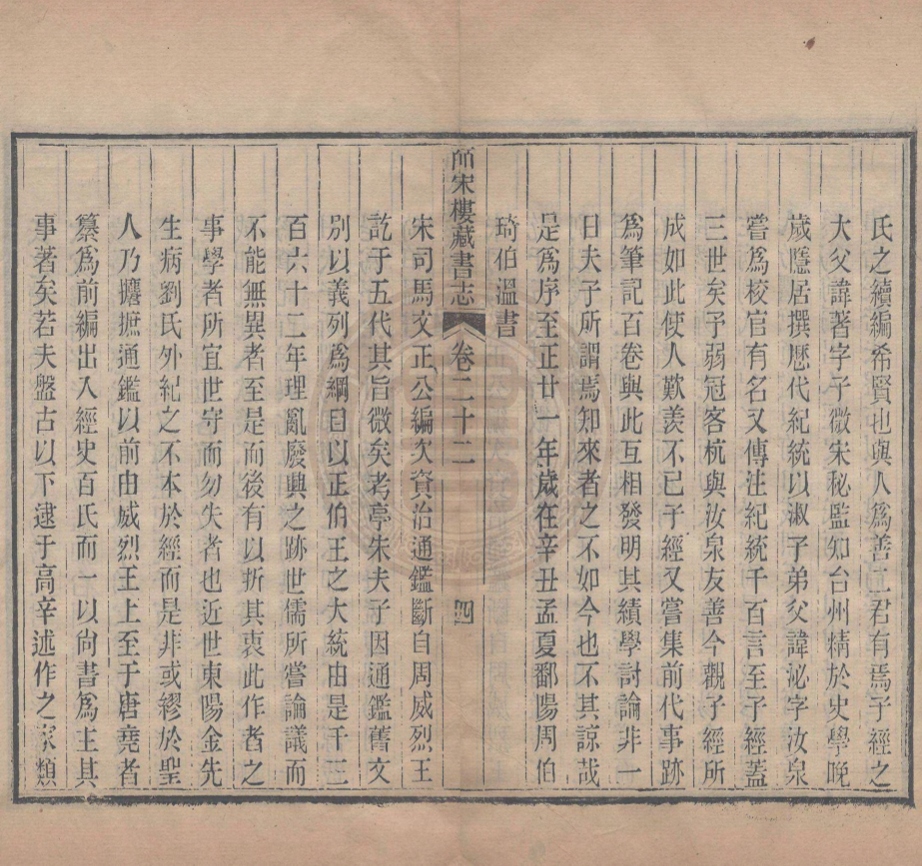 氏之續編希賢也與人爲善二君有焉子經之
大父諱著字子微宋秘監知台州精於史學晚
歲隱居撰歷代紀統以淑子弟父諱泌字汝泉
嘗爲校官有名又傳注紀統千百言至子經蓋
三世矣予弱冠客杭與汝泉友善今觀子經所
成如此使人歎羨不已子經又嘗集前代事跡
爲筆記百卷與此互相發明其績學討論非一
日夫子所謂焉知來者之不如今也不其諒哉
是爲序至正廿一年歲在辛丑孟夏鄱陽周伯
琦伯溫書
皕宋樓藏書志 卷二十二 四
宋司馬文正公編次資治通鑑斷自周威烈王
訖于五代其旨微矣考亭朱夫子因通鑑舊文
別以義列爲綱目以正伯王之大統由是千三
百六十二年理亂廢興之跡世儒所嘗論議而
不能無異者至是而後有以折其衷此作者之
事學者所宜世守而勿失者也近世東陽金先
生病劉氏外紀之不本於經而是非或繆於聖
人乃攟摭通鑑以前由威烈王上至于唐堯者
纂爲前編出入經史百氏而一以尙書爲主其
事著矣若夫盤古以下逮于高辛述作之家類